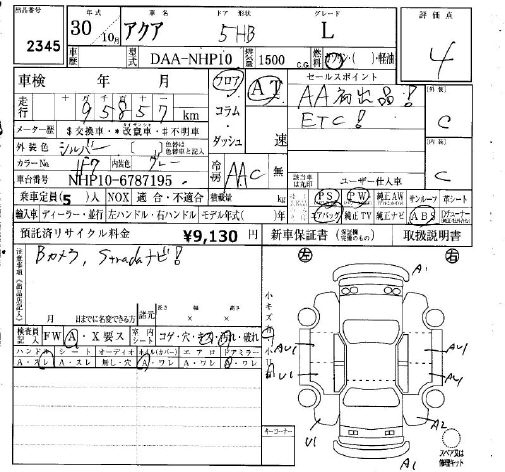 出品番号 年式 車名 ドア 形状 グレード 評価点
2345 30 10月 アクア 5HB L 4
車歴 型式 DAA-NHP10 排気量 1500 C.C. 燃料 ガソリン・( )・軽油
車検 年 月 フロア AT セールスポイント
走行 十 万 千 百 十 一 95857 km コラム・ダッシュ 速 AA初出品! 外装 C
メーター歴 $交換車・*改竄車・#不明車 ETC!
外装色 シルバー ( ) 色替は色替車と記入 冷房 AAC 無 内装 C
カラーNo. 1F7 内装色 グレー 該当車は丸印 ユーザー仕入車
車台番号 NHP10-6787195
乗車定員(5)人 NOX 適合・不適合 積載量 kg PS PW 純正AW サンルーフ 革シート
輸入車 ディーラー・並行 左ハンドル・右ハンドル モデル年式( )年 エアバック 純正TV 純正ナビ ABS
預託済リサイクル料金 ¥9,130 円 新車保証書 取扱説明書
注意事項 Bカメラ, Stradaナビ!
左 右 A1
月 日までに名変できる方 諸元 長さ 幅 高さ 小キズ
検査員記入 FW A・X要ス 室内 シート コゲ・穴・キズ・汚れ・破れ
ハンドル シート オーディオ ホイル(カバー) エアロ ドアミラー
A・スレ A・スレ 無し・穴 A・ワレ A・ワレ A・ワレ
AU1 AU1
U1 AU1
U1 A2
キーコーナー A1 スペア又は修理キット